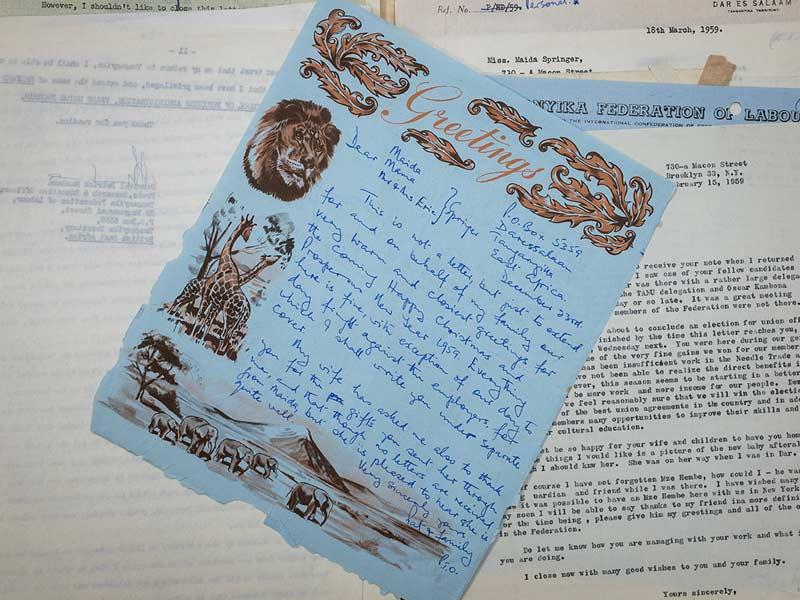 However, I shouldn't like to close this
Ref. No. P/HD/59. Personal.
DAR ES SALAAM
TANGANYIKA TERRITORY
18th March, 1959.
Miss. Maida Springer,
730 - A Macon Street
NYIKA FEDERATION OF LABOU
THE INTERNATIONAL CONFEDERATION OF
Greetings
P.O. Box 5359
Daressalaam
Tanganyika
East Africa
December 23rd
Dear Maida
Mama
Mr & Mrs Eric } Springer
This is not a letter but just to extend
for and on behalf of my family our
very warm and dearest greetings for
the coming Happy Christmas and
Prosperous New Year 1959. Everything
here is fine with exception of our day to
day fight against the employers, for
which I shall write you under separate
cover.
My wife has asked me also to thank
you for the gifts you sent her through
me and that though no letters are received
from Maida but she is pleased to hear she is
quite well.
Very sincerely yours
& family
P.T.O.
730-a Macon Street
Brooklyn 33, N.Y.
bruary 15, 1959
receive your note when I returned
I saw one of your fellow candidates
was there with a rather large delega
the TANU delegation and Oscar Kambona
day or so late. It was a great meeting
members of the Federation were not there.
about to conclude an election for union off
finished by the time this letter reaches you,
Wednesday next. You were here during our gen
of the very fine gains we won for our member
been insufficient work in the Needle Trade a
not been able to realize the direct benefits i
ever, this season seems to be starting in a better
be more work and more income for our people. Dem
we feel reasonably sure that we will win the electi
of the best union agreements in the country and in add
members many opportunities to improve their skills and
cultural education.
be so happy for your wife and children to have you hom
things I would like is a picture of the new baby afteral
h I should know her. She was on her way when I was in Dar.
f course I have not forgotten Mze Hembe, how could I - he wa
guardian and friend while I was there. I have wished many
it was possible to have an Mze Hembe here with us in New York
ay soon I will be able to say thanks to my friend ina more defini
for the time being , please give him my greetings and all of the o
in the Federation.
Do let me know how you are managing with your work and what i
you are doing.
I close now with many good wishes to you and your family.
Yours sincerely,